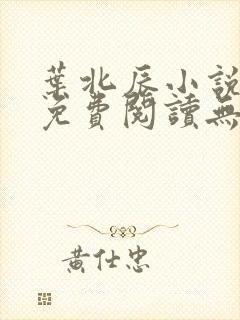 葉北辰小說
免費閱讀無
黃仕忠